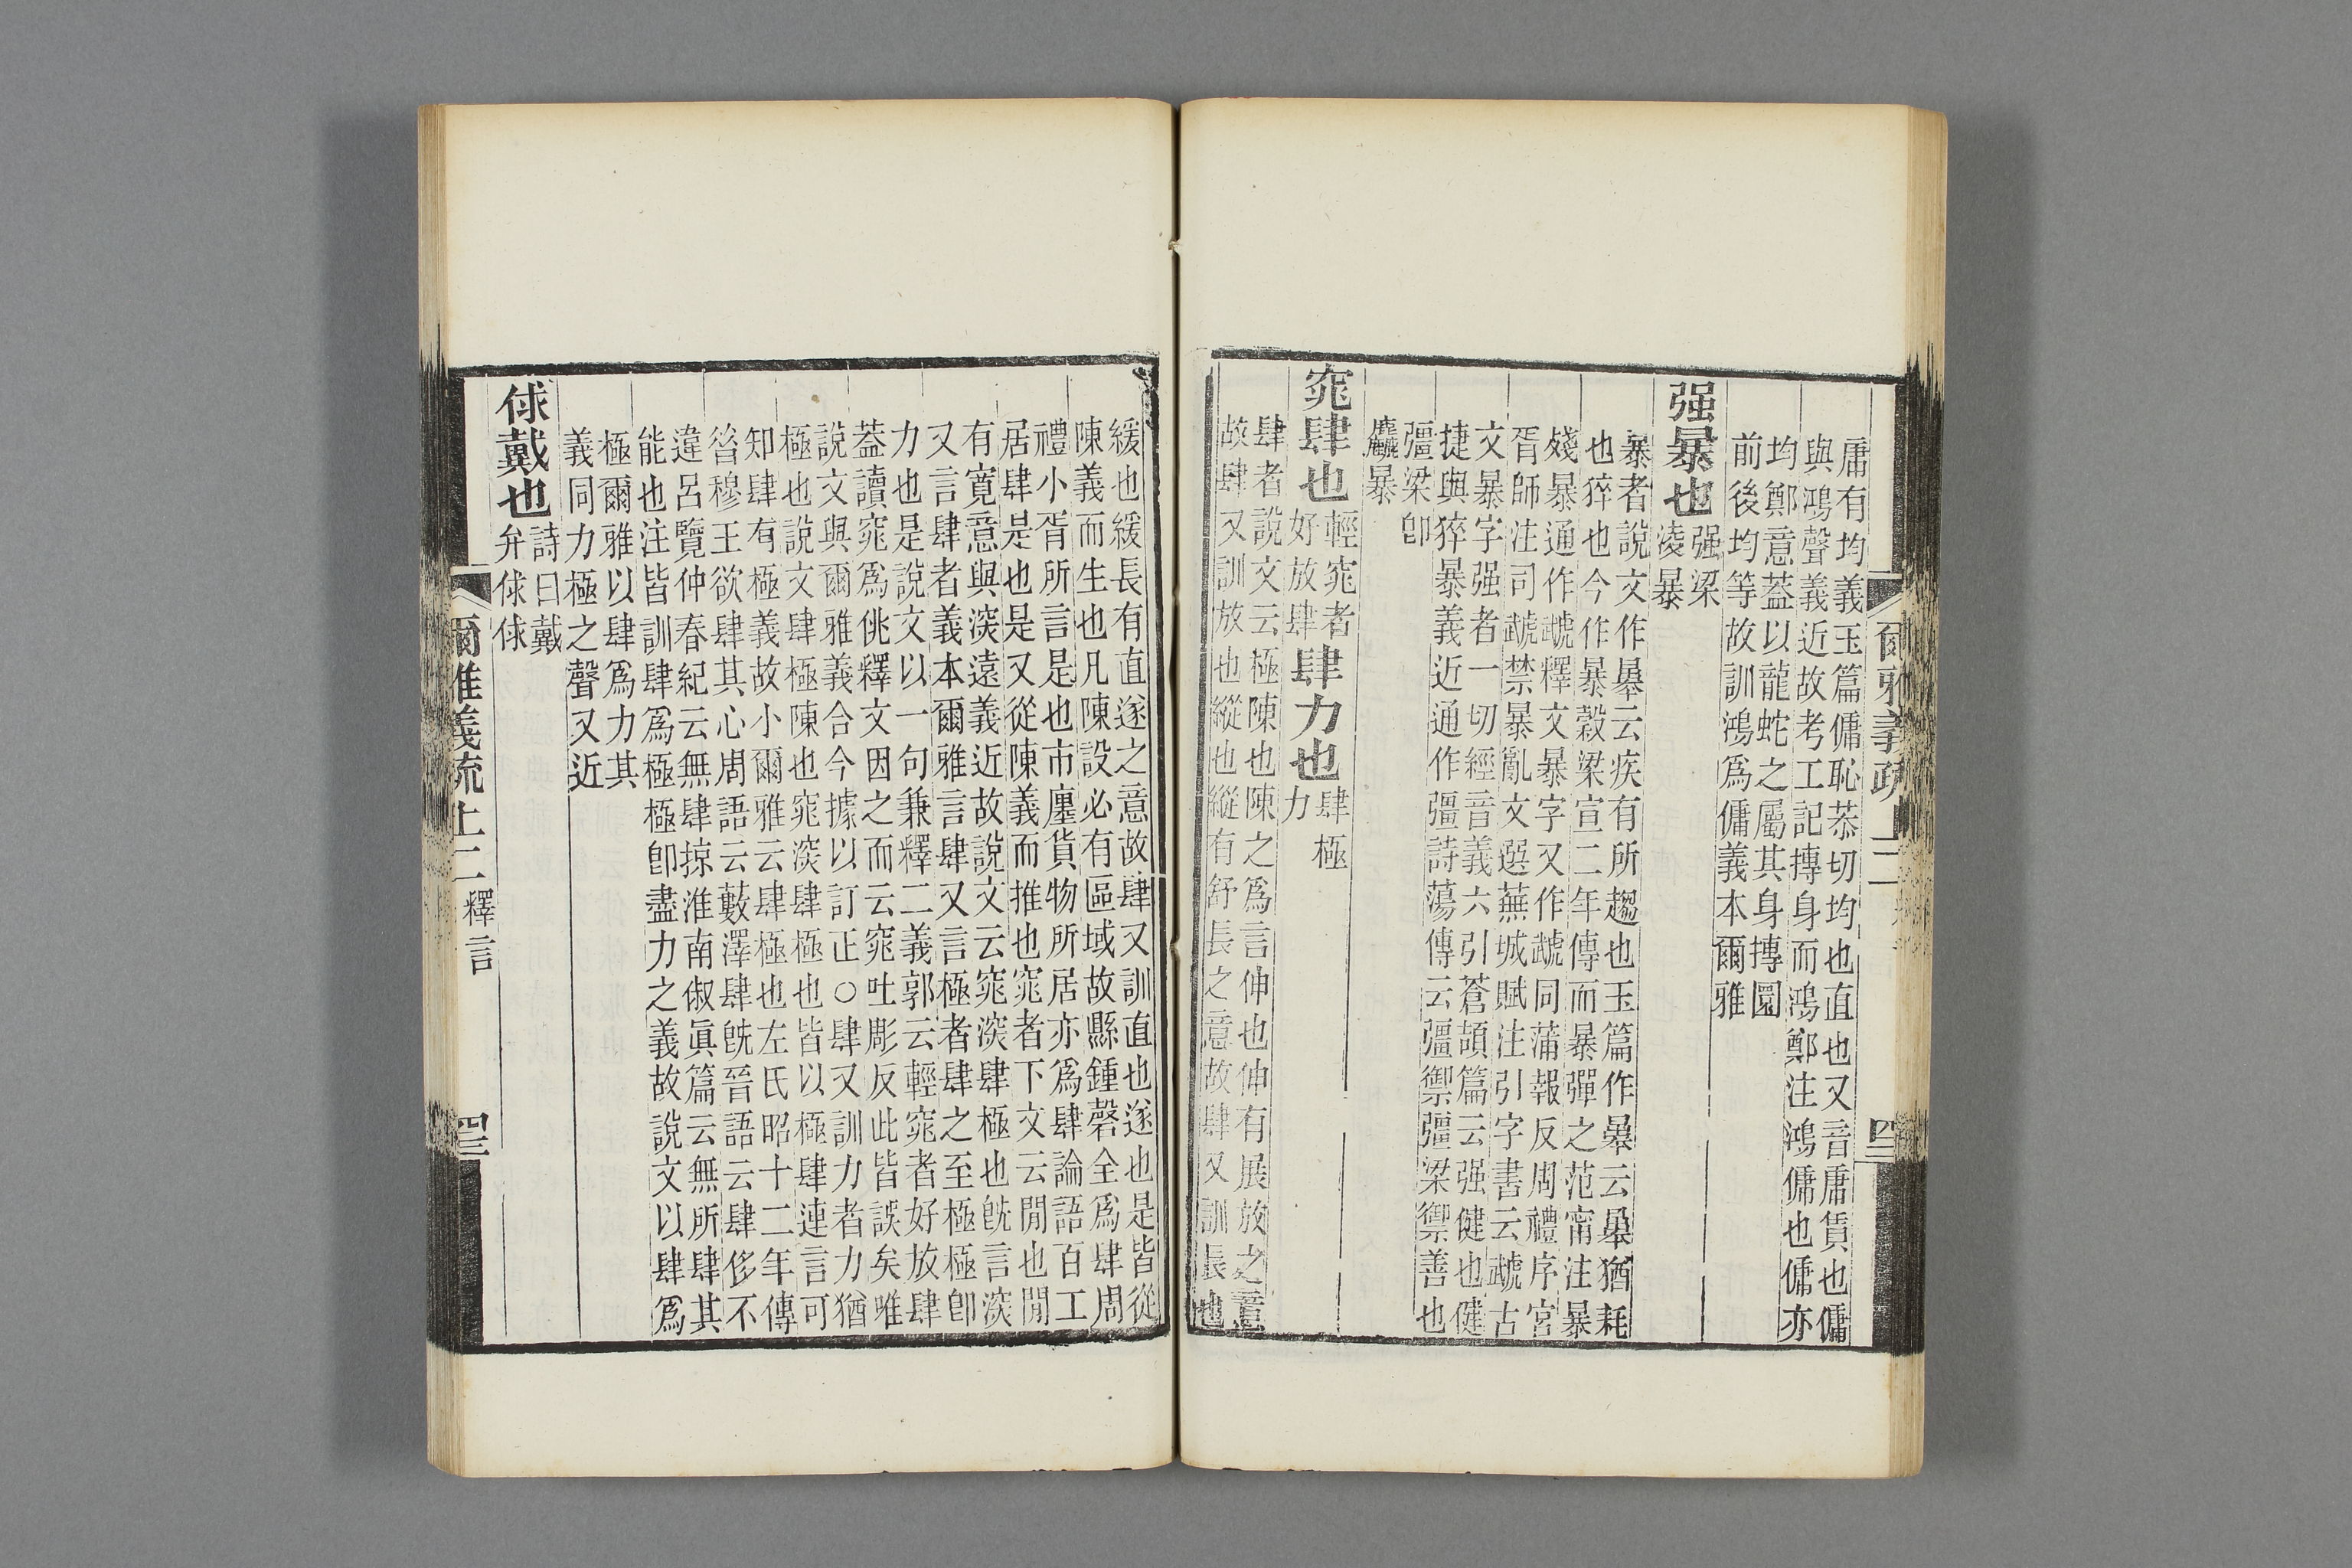 爾雅義疏
庸有均義玉篇傭恥恭切均也直也又音庸賃也傭
與鴻聲義近故考工記摶身而鴻鄭注鴻傭也傭亦
均鄭意葢以龍蛇之屬其身摶圜
前後均等故訓鴻爲傭義本爾雅
强暴也
强梁
淩暴
暴者說文作㬥云疾有所趨也玉篇作㬥云㬥猶耗
也猝也今作暴穀梁宣二年傳而暴彈之范甯注暴
殘暴通作虣釋文暴字又作虣同蒲報反周禮序宮
胥師注司虣禁暴亂文選蕪城賦注引字書云虣古
文暴字强者一切經音義六引蒼頡篇云强健也健
捷與猝暴義近通作彊詩蕩傳云彊禦彊梁禦善也
彊梁卽
麤暴
窕肆也
輕窕者
好放肆
肆力也
肆極
力
肆者說文云極陳也陳之爲言伸也伸有展放之意
故肆又訓放也縱也縱有舒長之意故肆又訓長也
緩也緩長有直遂之意故肆又訓直也遂也是皆從
陳義而生也凡陳設必有區域故縣鍾磬全爲肆周
禮小胥所言是也市廛貨物所居亦爲肆論語百工
居肆是也是又從陳義而推也窕者下文云閒也閒
有寬意與深遠義近故說文云窕深肆極也旣言深
又言肆者義本爾雅言肆又言極者肆之至極極卽
力也是說文以一句兼釋二義郭云輕窕者好放肆
葢讀窕爲佻釋文因之而云窕吐彫反此皆誤矣唯
說文與爾雅義合今據以訂正〇肆又訓力者力猶
極也說文肆極陳也窕深肆極也皆以極肆連言可
知肆有極義故小爾雅云肆極也左氏昭十二年傳
昝穆王欲肆其心周語云藪澤肆旣晉語云肆侈不
違呂覽仲春紀云無肆掠淮南俶眞篇云無所肆其
能也注皆訓肆爲極極卽盡力之義故說文以肆爲
極爾雅以肆爲力其
義同力極之聲又近
俅戴也
詩曰戴
弁俅俅
爾雅義疏上二
釋言
四三